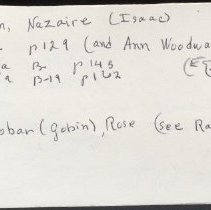 n, Nazaire (Isaac)
p 129 (and Ann Woodwa
a B- p 145
a B-19 p 162
oban (gobin), Rose (see Ra